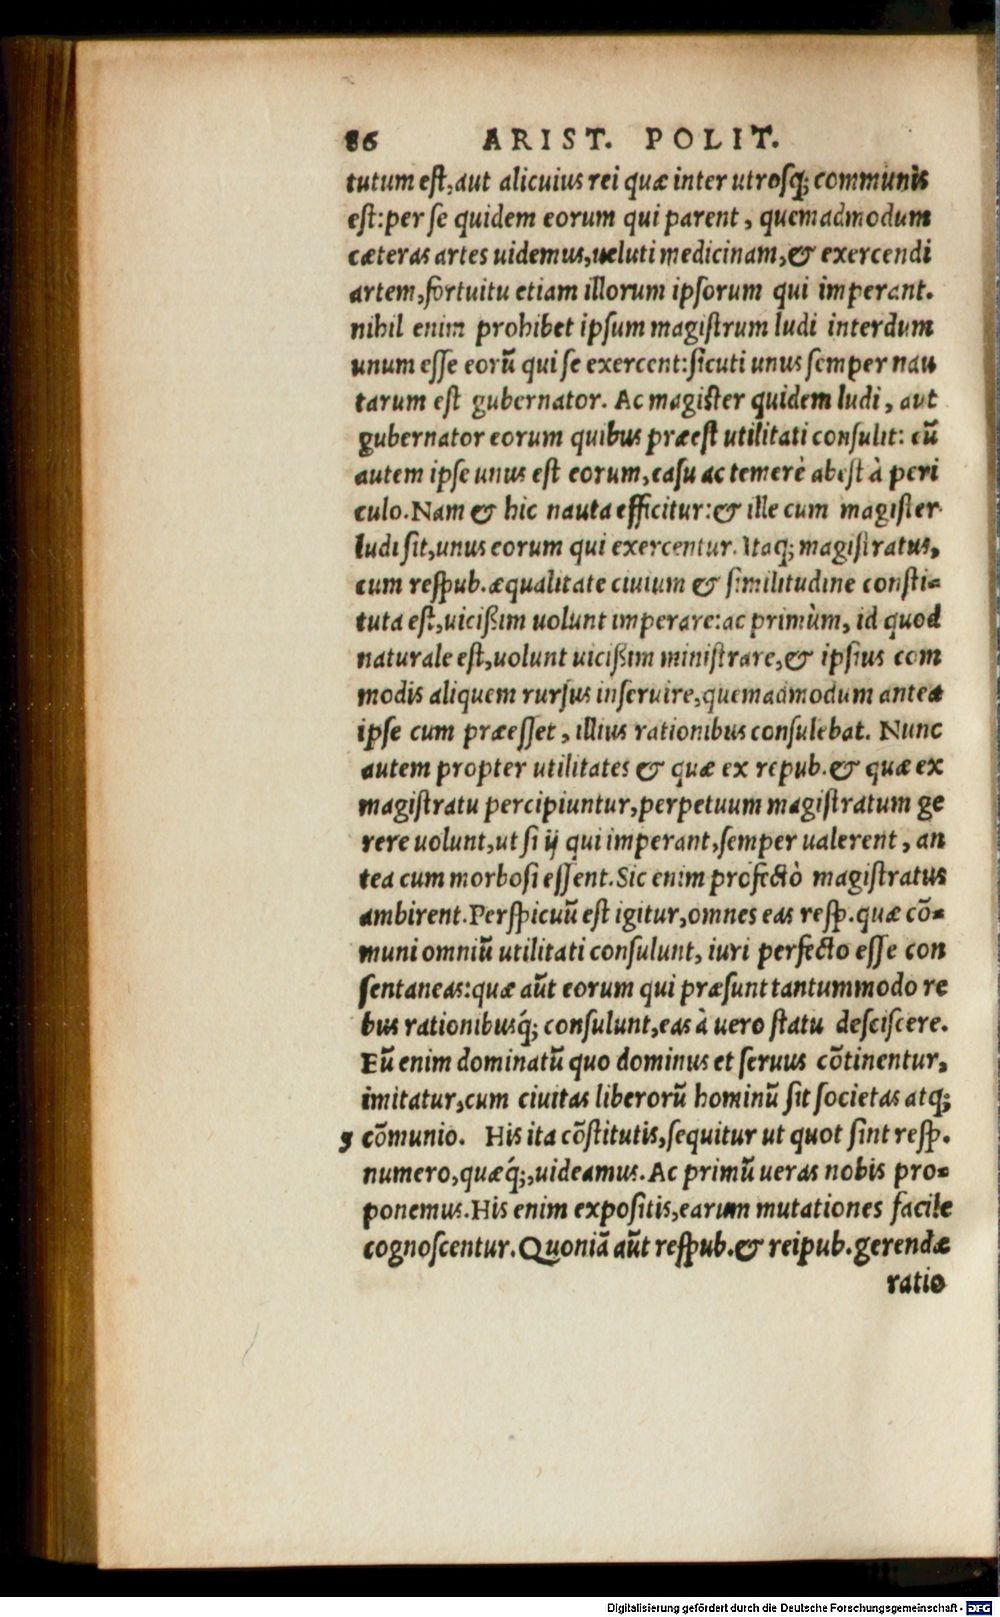 86 ARIST. POLIT.
tutum eſt, aut alicuius rei quæ inter utroſq; communis
eſt: per ſe quidem eorum qui parent, quemadmodum
cæteras artes uidemus, ueluti medicinam, & exercendi
artem, fortuitu etiam illorum ipſorum qui imperant.
nihil enim prohibet ipſum magiſtrum ludi interdum
unum eſſe eorũ qui ſe exercent: ſicuti unus ſemper nau
tarum eſt gubernator. Ac magiſter quidem ludi, aut
gubernator eorum quibus præeſt utilitati conſulit: cũ
autem ipſe unus eſt eorum, caſu ac temerè abeſt à peri
culo. Nam & hic nauta efficitur: & ille cum magiſter
ludi ſit, unus eorum qui exercentur. Itaq; magiſtratus,
cum reſpub. æqualitate ciuium & ſimilitudine conſti-
tuta eſt, uicißim uolunt imperare: ac primùm, id quod
naturale eſt, uolunt uicißim miniſtrare, & ipſius com
modis aliquem rurſus inſeruire, quemadmodum antea
ipſe cum præeſſet, illius rationibus conſulebat. Nunc
autem propter utilitates & quæ ex repub. & quæ ex
magiſtratu percipiuntur, perpetuum magiſtratum ge
rere uolunt, ut ſi ij qui imperant, ſemper ualerent, an
tea cum morboſi eſſent. Sic enim profectò magiſtratus
ambirent. Perſpicuũ eſt igitur, omnes eas reſp. quæ cõ-
muni omniũ utilitati conſulunt, iuri perfecto eſſe con
ſentaneas: quæ aũt eorum qui præſunt tantummodo re
bus rationibusq́; conſulunt, eas à uero ſtatu deſciſcere.
Eũ enim dominatũ quo dominus et ſeruus cõtinentur,
imitatur, cum ciuitas liberorũ hominũ ſit ſocietas atq;
9 cõmunio. His ita cõſtitutis, ſequitur ut quot ſint reſp.
numero, quæq́;, uideamus. Ac primũ ueras nobis pro-
ponemus. His enim expoſitis, earum mutationes facile
cognoſcentur. Quoniã aũt reſpub. & reipub. gerendæ
ratio
Digitalisierung gefördert durch die Deutsche Forschungsgemeinschaft - DFG